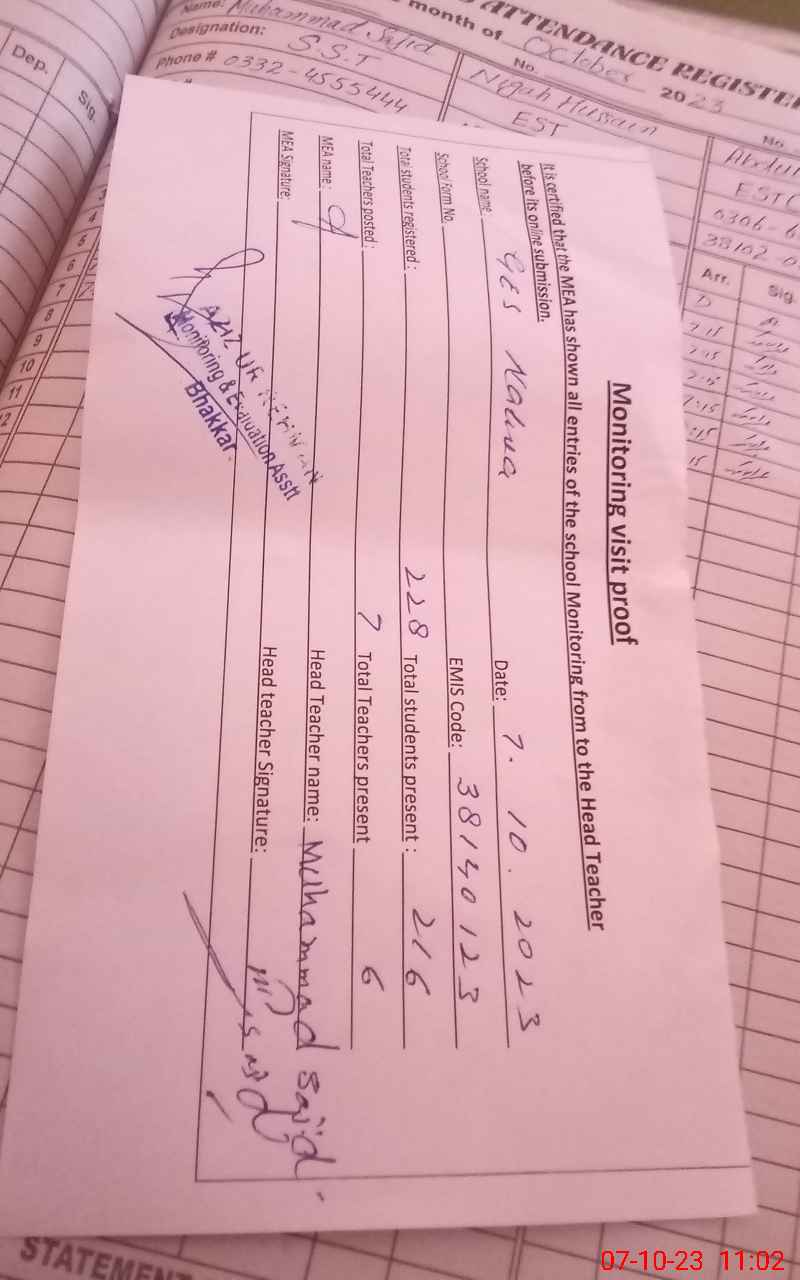 ATTENDANCE REGISTER
month of October 2023
Name: Muhammad Sajid
Designation: S.S.T
Phone # 0332-4555444
No.
Hussain
EST
No.
0306-6
38102-0
Dep.
Sig.
Arr.
Sig.
4
5
6
7
8
9
10
11
12
D
7:15
7:15
7:15
7:15
:15
15
Monitoring visit proof
It is certified that the MEA has shown all entries of the school Monitoring from to the Head Teacher
before its online submission.
School name: GES Date: 7.10.2023
School Form No. EMIS Code: 38140123
Total students registered: 228 Total students present: 216
Total Teachers posted: 7 Total Teachers present 6
MEA name: Head Teacher name: Muhammad Sajid
MEA Signature: Head teacher Signature:
Monitoring & Evaluation Asstt
Bhakkar.
STATEMENT
07-10-23 11:02